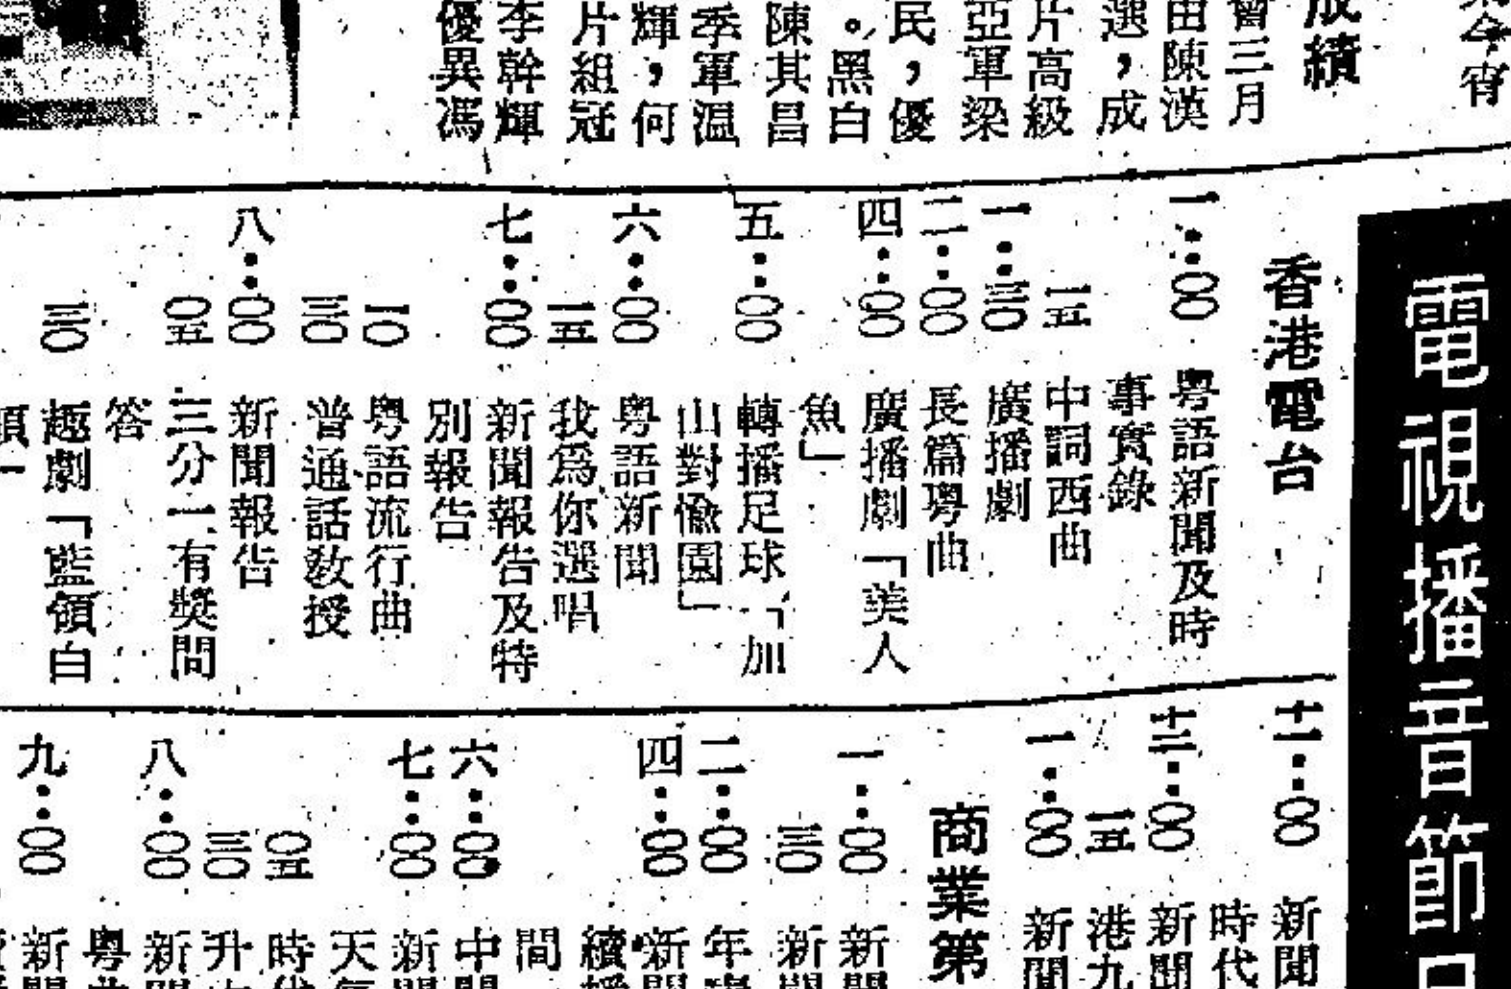 電視播音節
今宵
成績
曾三月
由陳漢
選，成
片高級
亞軍梁
民，優
。黑白
陳其昌
季軍溫
輝，何
片組冠
李幹輝
優異馮
香港電台
一：〇〇 粵語新聞及時
事實錄
一五 中詞西曲
一：三〇 廣播劇
二：〇〇 長篇粵曲
四：〇〇 廣播劇「美人
魚」
五：〇〇 轉播足球「加
山對愉園」
六：〇〇 粵語新聞
一五 我爲你選唱
七：〇〇 新聞報告及特
別報告
一〇 粵語流行曲
三〇 普通話教授
八：〇〇 新聞報告
〇五 三分一有獎問
答
三〇 趣劇「藍領白
領」
十一：〇〇 新聞
時代
十二：〇〇 新聞
一五 港九
一：〇〇 新聞
商業第
一：〇〇 新聞
三〇 新聞
二：〇〇 年
四：〇〇 新聞
續播
間
六：〇〇 中
七：〇〇 新聞
天氣
〇五 時代
三〇 升
八：〇〇 新聞
粵曲
九：〇〇 新聞